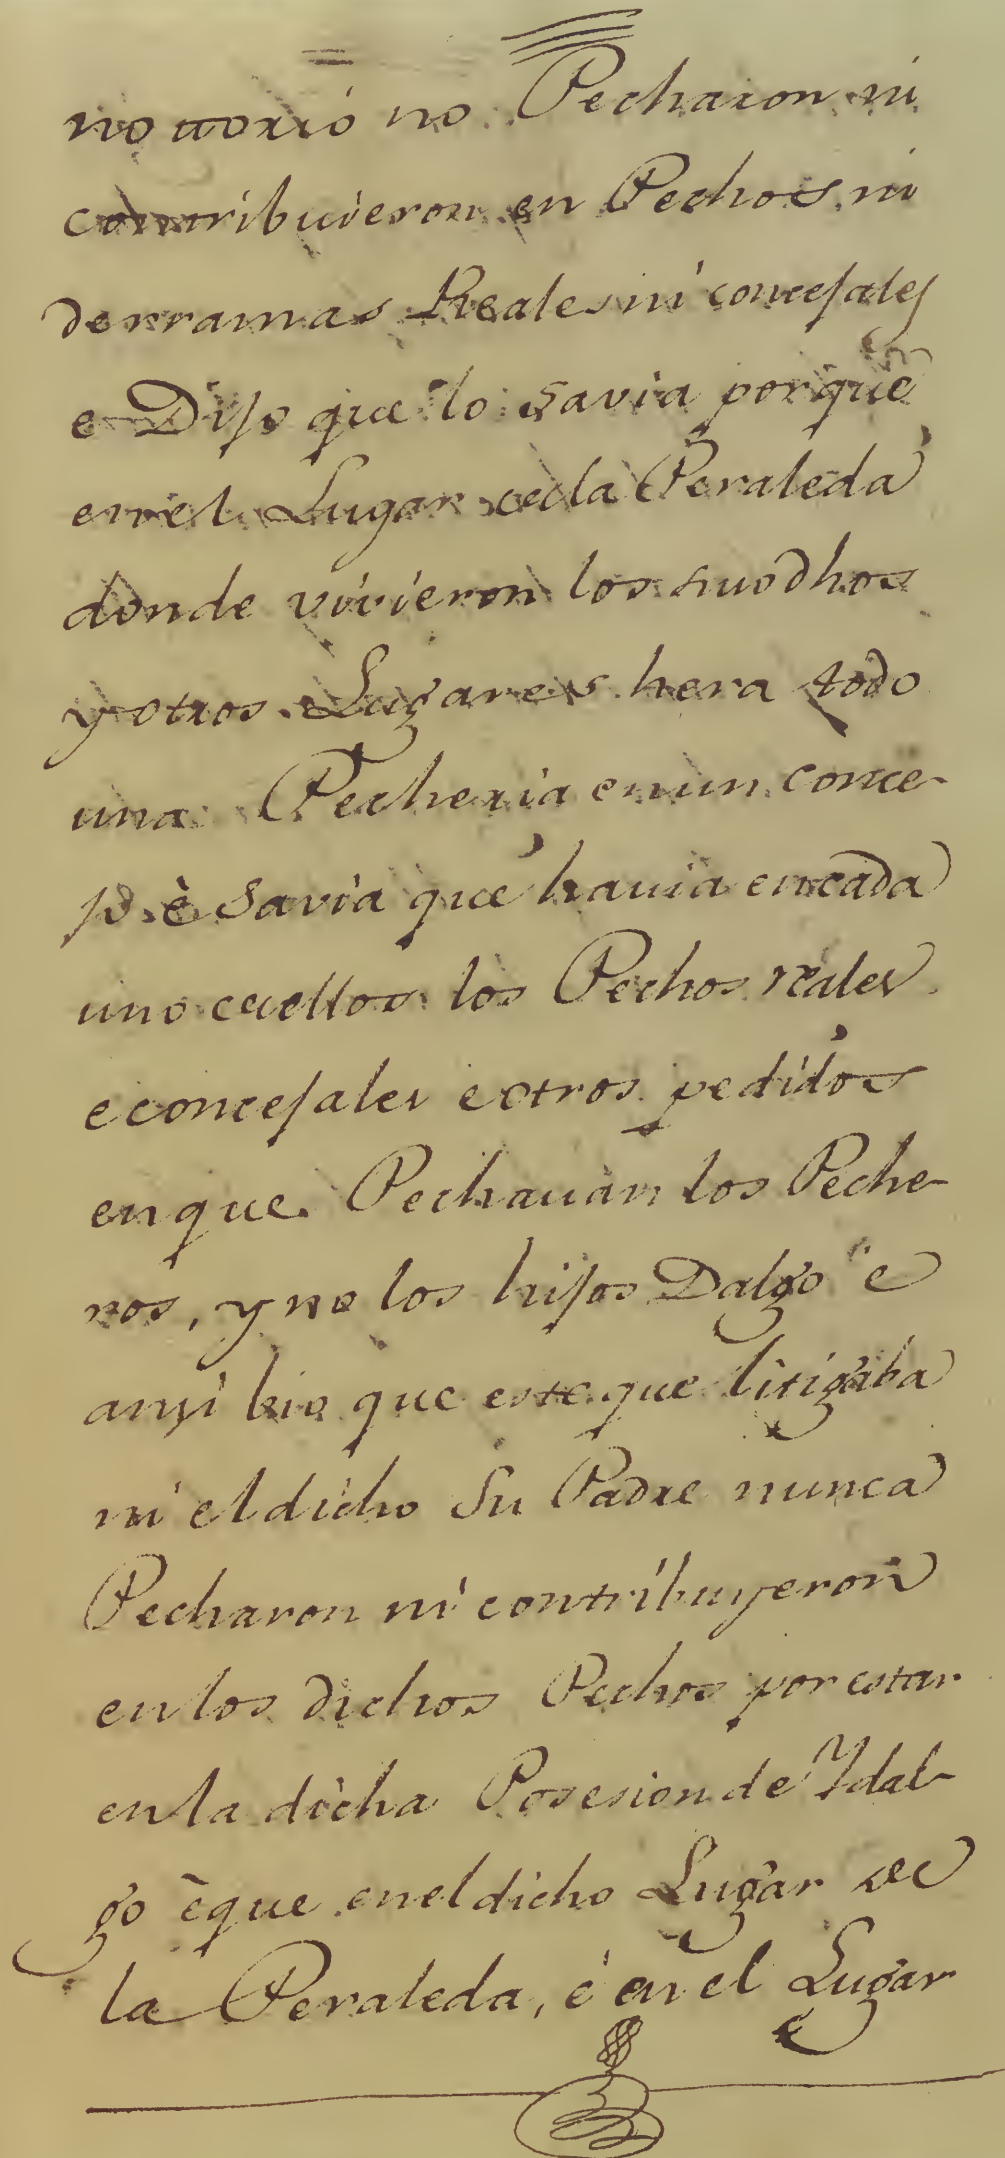 nottorio no Pecharon ni
contribuieron en Pechos ni
derramas Reales ni concejales
e Dijo que lo savia porque
en el Lugar de la Peraleda
donde vivieron los suodhos
y otros Lugares hera todo
una Pecheria en un conce-
jo è savia que havia en cada
uno de ellos los Pechos reales
e concejales e otros pedidos
en que Pechauan los Peche-
ros, y no los hijos Dalgo e
ansi bio que este que litigaba
ni el dicho Su Padre nunca
Pecharon ni contribuyeron
en los dichos Pechos por estar
en la dicha Posesion de Ydal-
go è que en el dicho Lugar de
la Peraleda, è en el Lugar